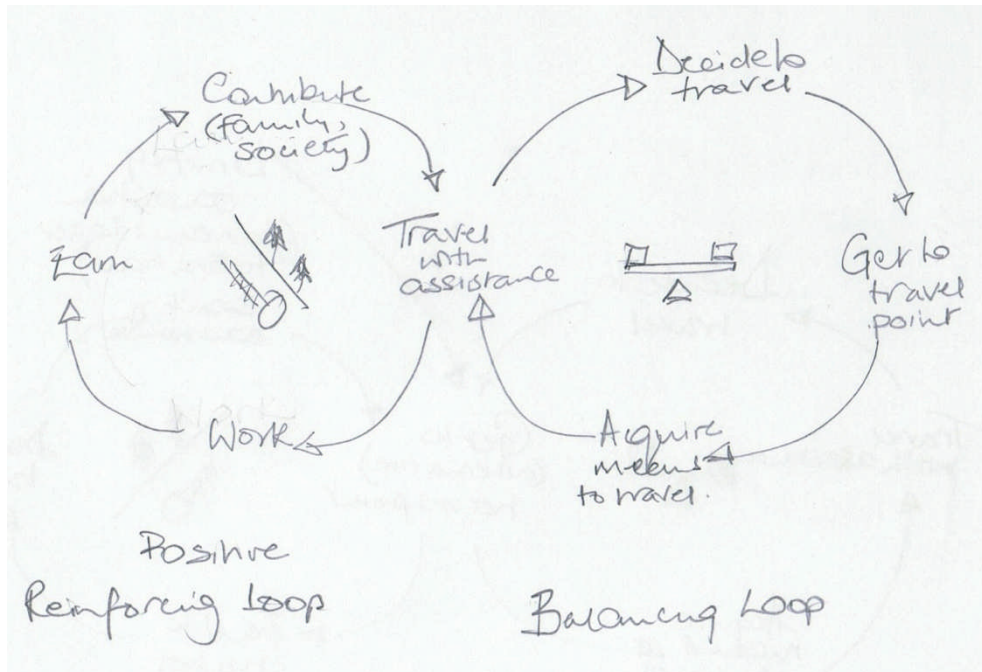 Contribute
(family,
society)
Earn
Work
Travel
with
assistance
Decide to
travel
Get to
travel
point
Acquire
means
to travel.
Positive
Reinforcing Loop
Balancing Loop